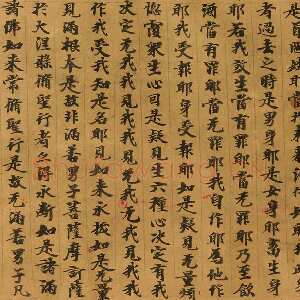 者過去之時是男身耶是女身耶畜生身
耶若我煞生當有罪耶當无罪耶乃至飲
酒當有罪耶當无罪耶我自作耶為他作
耶我受報耶身受報耶如是疑見无量煩
惱覆衆生心因是疑見生六種心决定有我
决定无我我見我我見无我无我見我我
作我受我知是名耶見如來永拔如是无量
見漏根本是故非漏善男子菩薩摩訶薩
於大涅槃脩聖行者亦得永斷如是諸漏
諸佛如來常脩聖行是故无漏善男子凡